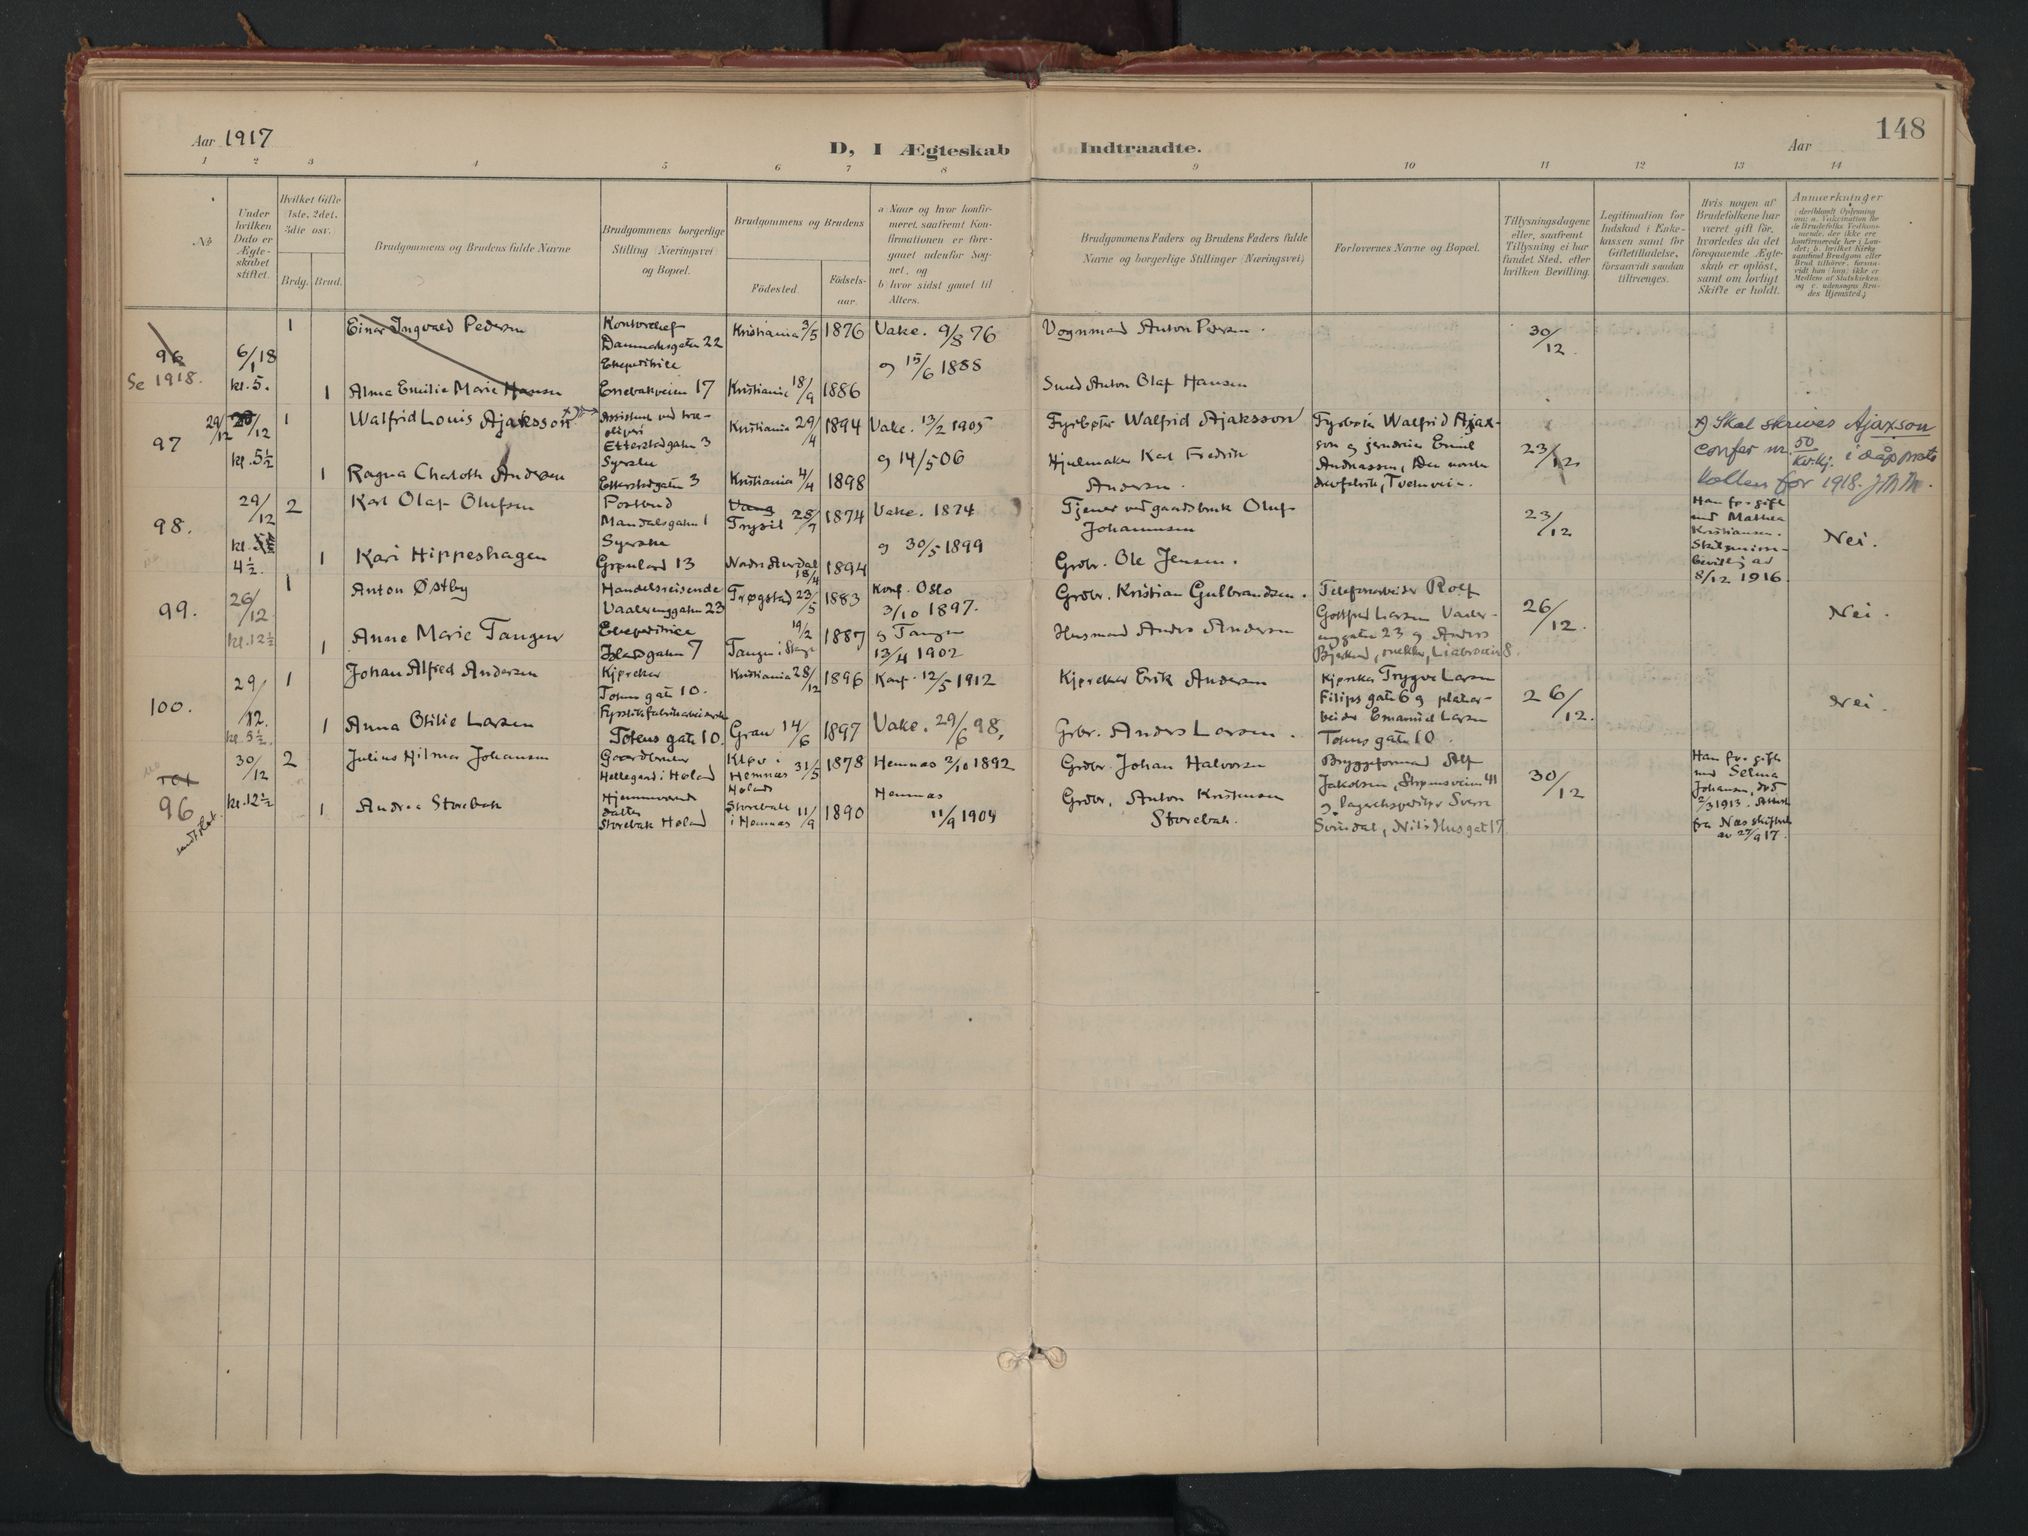 148
Aar 1917
D, I Ægteskab Indtraadte.
Aar
1 2 3 4 5 6 7 8 9 10 11 12 13 14
No
Under hvilken Dato er Ægteskabet stiftet.
Hvilket Gifte 1ste, 2det, 3die osv.
Brdg. Brud.
Brudgommens og Brudens fulde Navne
Brudgommens borgerlige Stilling (Næringsvei) og Bopæl.
Brudgommens og Brudens
Fødested.
Fødselsaar.
a) Naar og hvor konfirmeret, saafremt Konfirmationen er foregaaet udenfor Sognet, og
b) hvor sidst gaaet til Alters.
Brudgommens Faders og Brudens Faders fulde Navne og borgerlige Stillinger (Næringsvei)
Forlovernes Navne og Bopæl.
Tillysningsdagene eller, saafremt Tillysning ei har fundet Sted, efter hvilken Bevilling.
Legitimation for Indskud i Enkekassen samt for Giftetilladelse, forsaavidt saadan tiltrænges.
Hvis nogen af Brudefolkene har været gift før, hvorledes da det foregaaende Ægteskab er opløst, samt om lovligt Skifte er holdt.
Anmærkninger
96
Se 1918.
6/1 18
kl. 5.
1
Einar Ingvald Pedersen
Kontorchef
Danmarksgaten 22
Kristiania 3/5 1876
Vake. 9/8 76
Vognmand Anton Pedersen.
30/12.
1
Alma Emilie Marie Hansen
Ekspeditrice
Enebakveien 17
Kristiania 18/9 1886
og 15/6 1888
Smed Anton Olaf Hansen
97
29/12
kl. 5½
1
Walfrid Louis Ajaksson
Assistent ved
Etterstadgaten 3
Kristiania 29/4 1894
Vake. 13/2 1905
Fyrbøter Walfrid Ajaksson
Fyrbøter Walfrid Ajaxson og Emil Andreassen, Den norske
23/12
Skal skrives Ajaxson
confer nr. 50 i dåpsprotokollen for 1918.
1
Ragna Charloth Andersen
Syerske
Etterstadgaten 3
Kristiania 4/4 1898
og 14/5 06
Hjulmaker Karl Fredrik Andersen.
98.
29/12
kl. 4½
2
Karl Olaf Olufsen
Postbud
Mandalsgaten 1
Trysil 1874
Vake. 1874
Tjener ved gaardsbruk Oluf Johannesen
23/12
Han før gift med Mathea Kristiansen. Skilsmisse bevillig av 8/12 1916
Nei.
1
Kari Hippeshagen
Syerske
Grønland 13
Nordre Aurdal 18/4 1894
og 30/5 1899
Grdbr. Ole Jensen.
99.
26/12
kl. 12½
1
Anton Østby
Handelsreisende
Vaalerenggaten 23
Trøgstad 23/5 1883
Konf. Oslo 3/10 1897.
Grdbr. Kristian Gulbrandsen.
Telefonarbeider Rolf Gottfred Larsen 23 og Anders
26/12.
Nei.
1
Anne Marie Tangen
Ekspeditrice
Islandsgaten 7
Tangen i 19/2 1887
og Tangen 13/4 1902
Husmand Anders Andersen
100.
29/12.
kl. 5½.
1
Johan Alfred Andersen
Kjøreker
Totens gate 10.
Kristiania 28/12 1896
Konf. 12/5 1912
Kjøreker Erik Andersen
Kjøreker Trygve Larsen Filips gate 6 og Emanuel Larsen Totens gate 10.
26/12.
Nei.
1
Anna Otilie Larsen
Fyrstikfabrikarbeiderske
Totens gate 10.
Gran 14/6 1897
Vake. 29/6 98.
Grbr. Anders Larsen.
101
96
30/12
kl. 12½
2
Julius Hilmar Johansen
Gaardbruker
Hellegaard i Høland
Hemnæs Høland 31/5 1878
Hemnæs 2/10 1892
Grdbr. Johan Halvorsen
Bryggeformand Alf Jakobsen, Strømsveien 41 og lagerekspeditør Sverre Svindal, Nils Husgat 17
30/12
Han før gift med Selma Johansen, død 2/3 1913. Attest fra Næs skifteret av 27/9 17.
1
Andrea Storebak
Hjemmeværende datter
Storebak Høland
Storebak i Hemnæs 11/9 1890
Hemnæs 11/9 1904
Grdbr. Anton Kristensen Storebak.